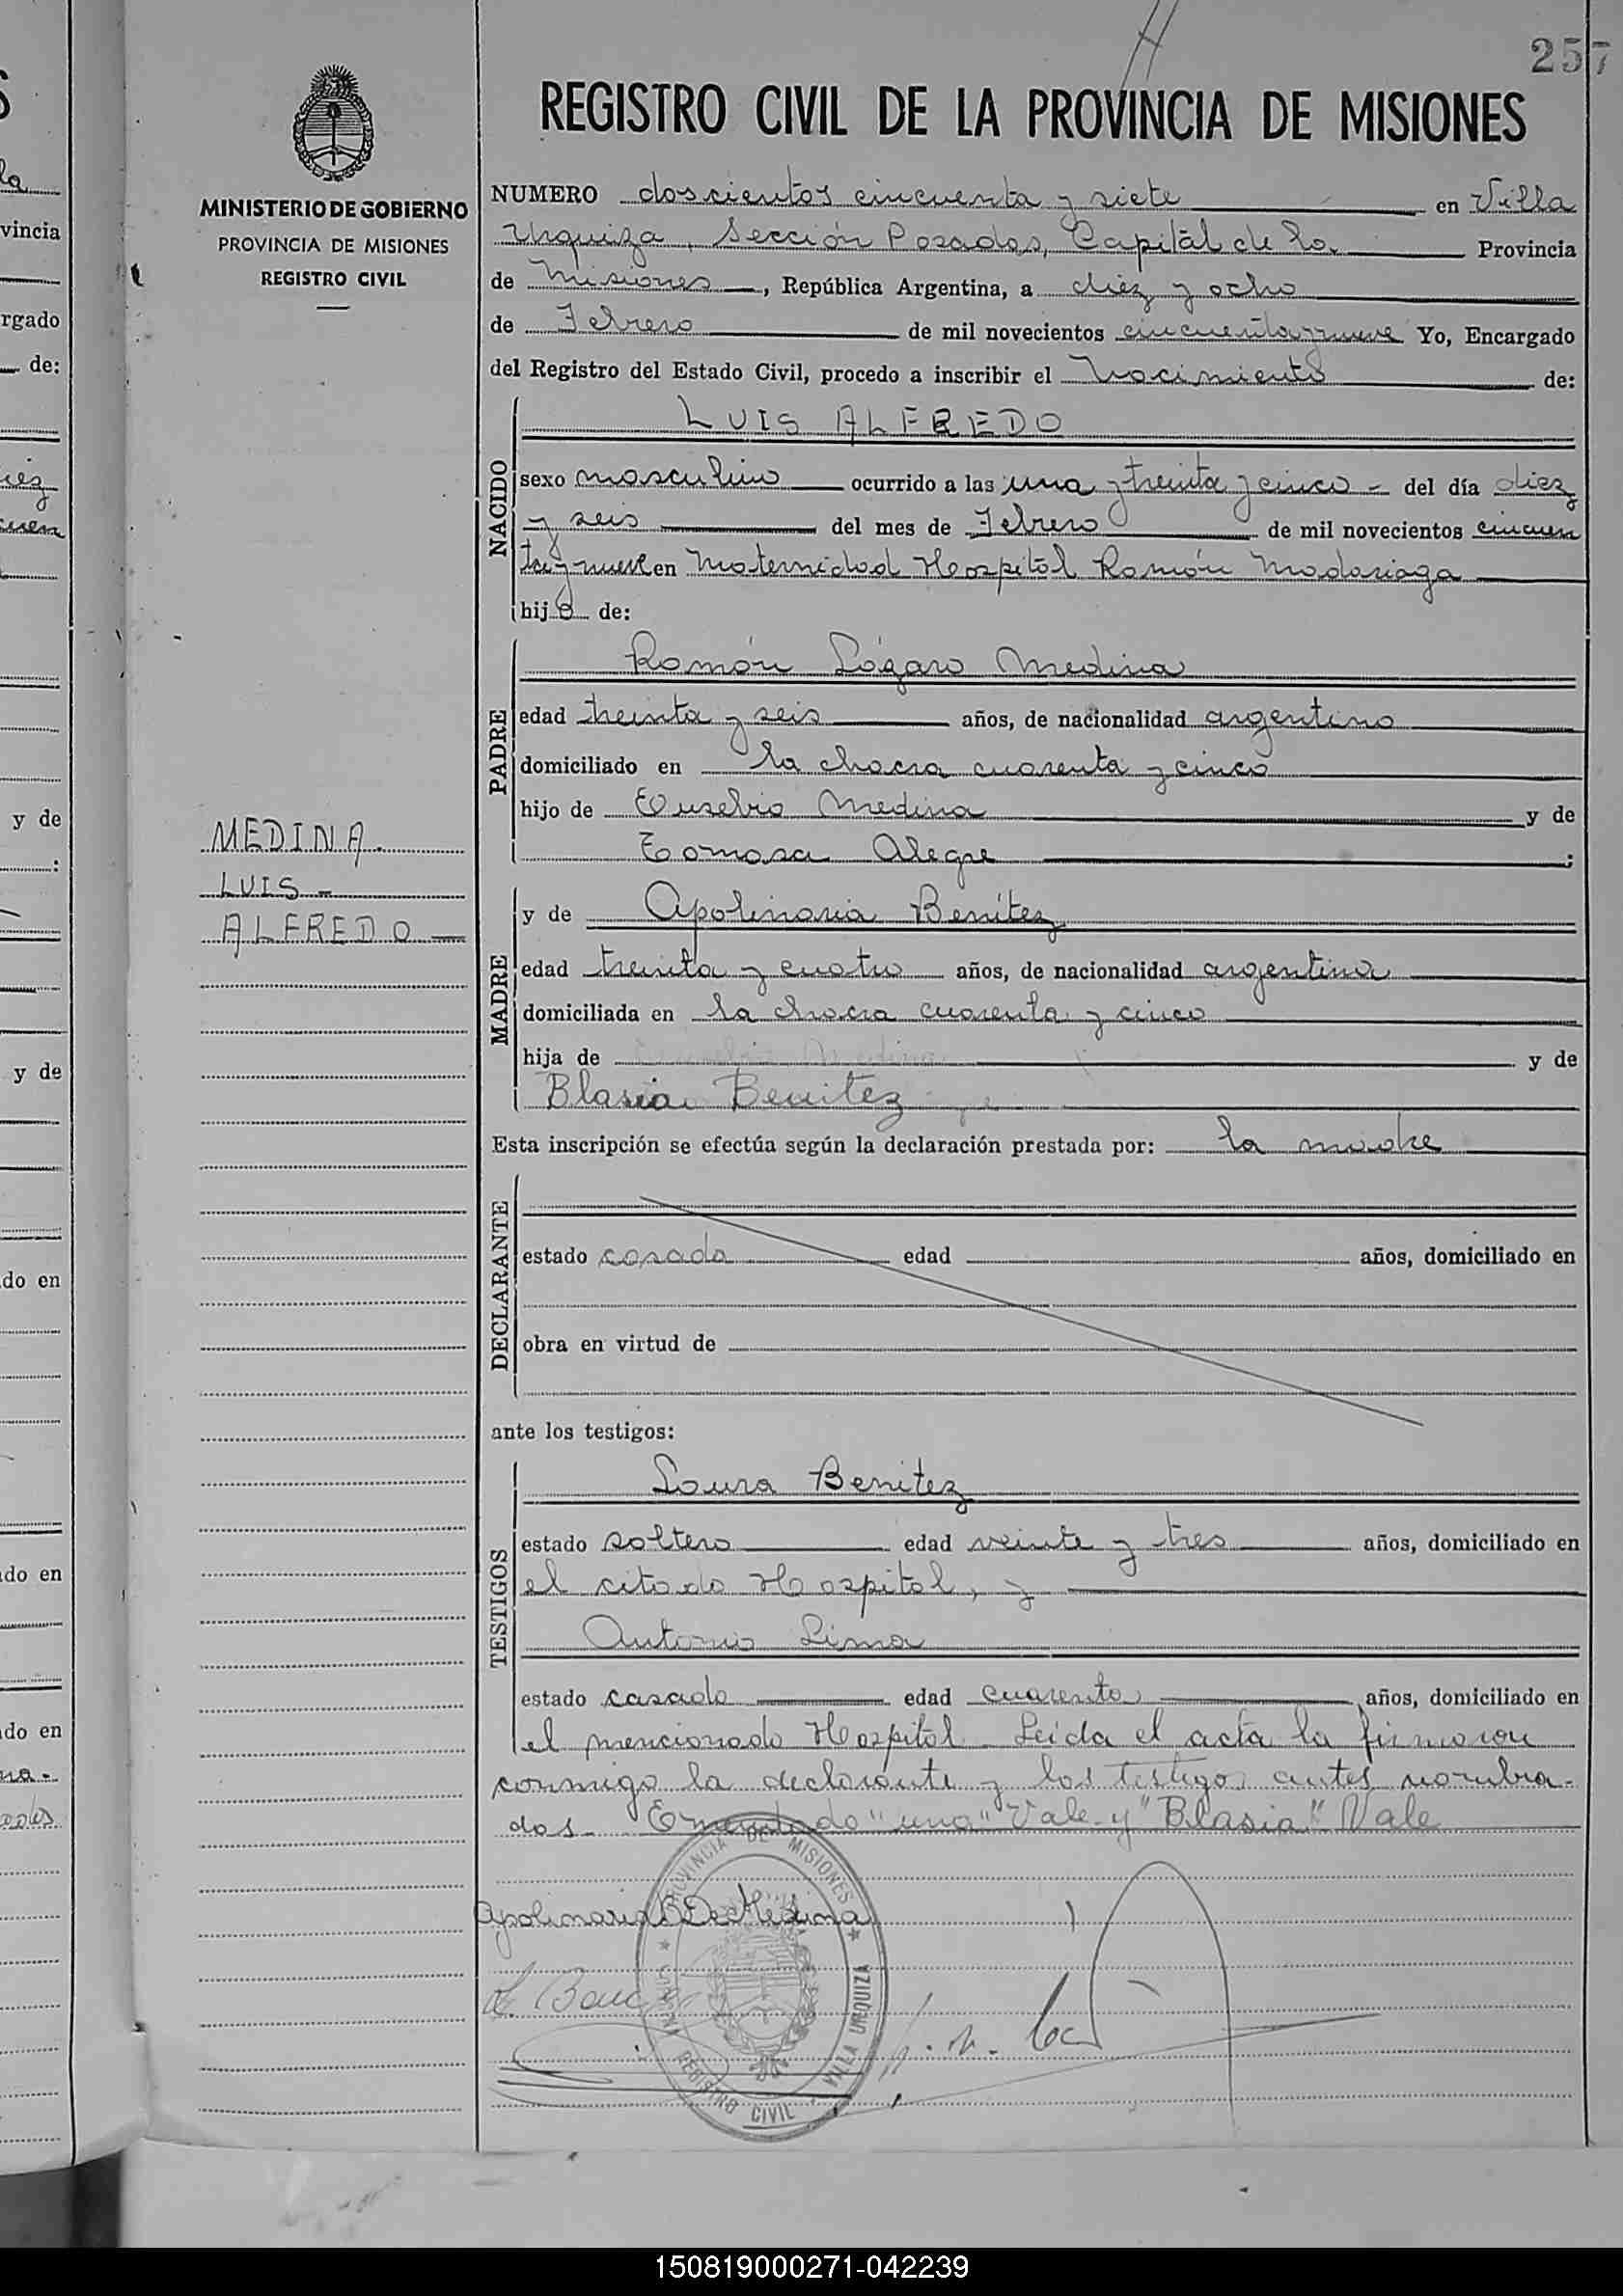 257
REGISTRO CIVIL DE LA PROVINCIA DE MISIONES
MINISTERIO DE GOBIERNO
PROVINCIA DE MISIONES
REGISTRO CIVIL
MEDINA.
LUIS -
ALFREDO
NUMERO doscientos cincuenta y siete en Villa
Urquiza, Sección Posadas, Capital de la Provincia
de Misiones, República Argentina, a diez y ocho
de Febrero de mil novecientos cincuenta y nueve Yo, Encargado
del Registro del Estado Civil, procedo a inscribir el Nacimiento de:
NACIDO
LUIS ALFREDO
sexo masculino ocurrido a las una y treinta y cinco - del día diez
y seis del mes de Febrero de mil novecientos cincuen
ta y nueve en Maternidad Hospital Ramón Madariaga
hijo de:
PADRE
Ramón Lázaro Medina
edad treinta y seis años, de nacionalidad argentino
domiciliado en la chacra cuarenta y cinco
hijo de Eusebio Medina y de
Tomasa Alegre ;
MADRE
y de Apolinaria Benítez
edad treinta y cuatro años, de nacionalidad argentina
domiciliada en la chacra cuarenta y cinco
hija de y de
Blasia Benitez
Esta inscripción se efectúa según la declaración prestada por: la madre
DECLARANTE
estado casada edad años, domiciliado en
obra en virtud de
ante los testigos:
TESTIGOS
Laura Benitez
estado soltera edad veinte y tres años, domiciliado en
el citado Hospital, y
Antonio Lima
estado casado edad cuarenta años, domiciliado en
el mencionado Hospital. Leida el acta la firmaron
conmigo la declarante y los testigos antes nombra-
dos. Enmendado "una" Vale y "Blasia" Vale
Apolinaria B De Medina
PROVINCIA DE MISIONES
REGISTRO CIVIL
VILLA URQUIZA
vincia
rgado
de:
y de
y de
do en
do en
do en
150819000271-042239